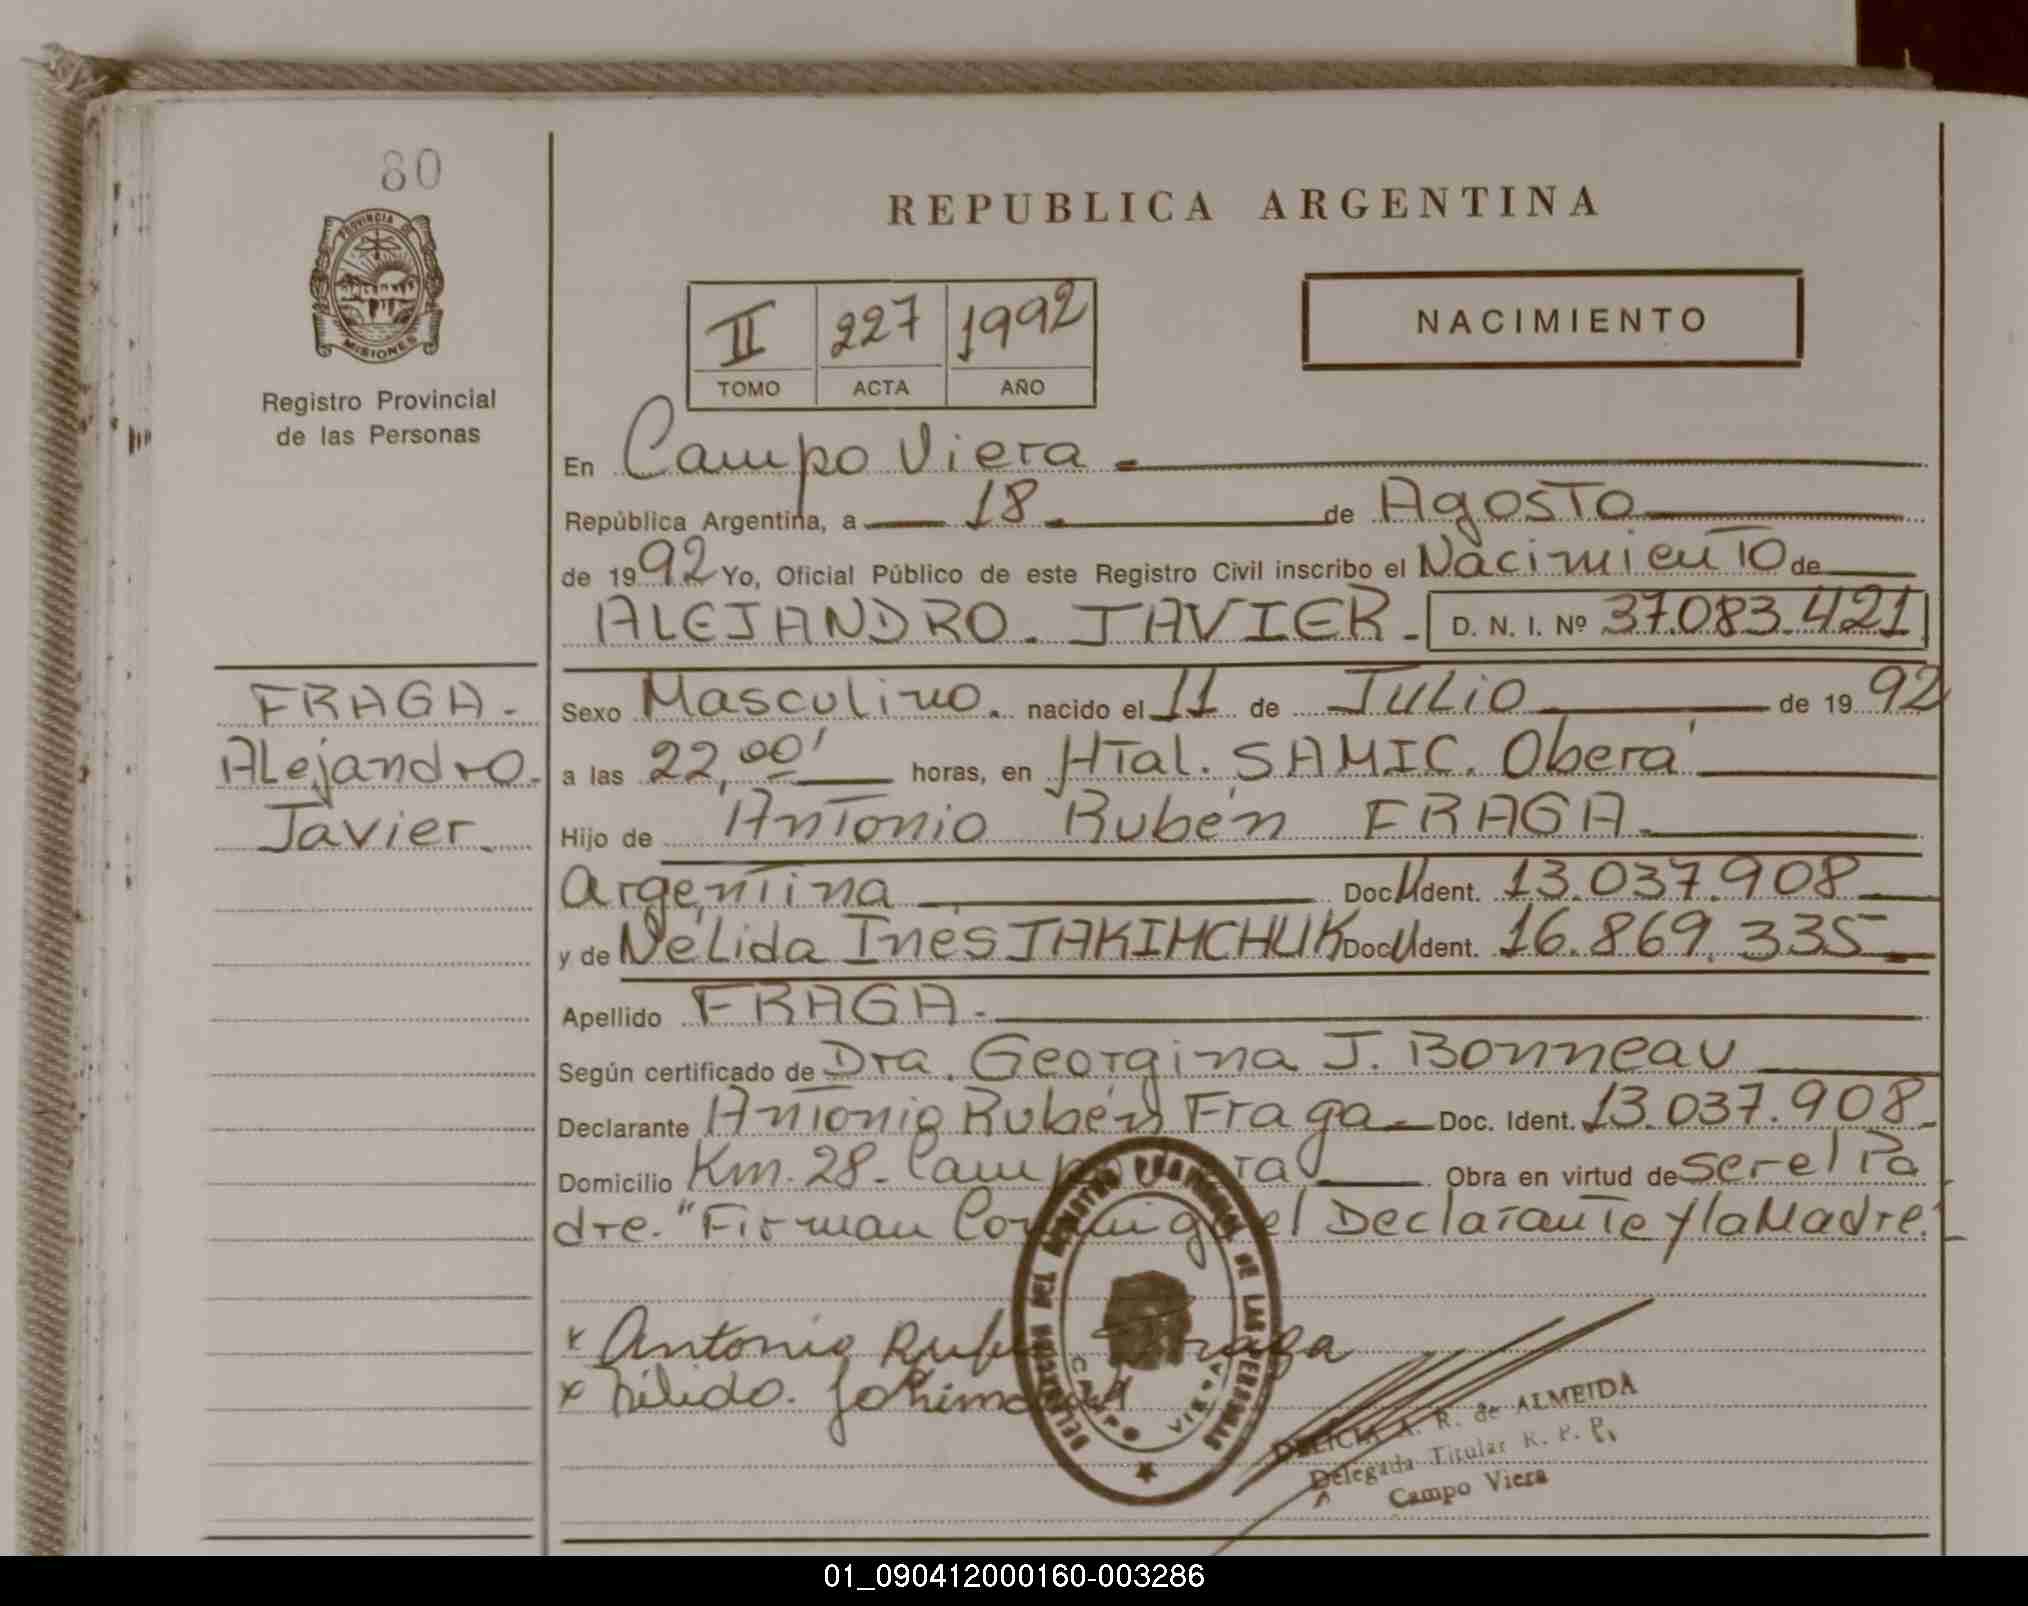 80
PROVINCIA DE
MISIONES
Registro Provincial
de las Personas
REPUBLICA ARGENTINA
II 227 1992
TOMO ACTA AÑO
NACIMIENTO
En Campo Viera.
República Argentina, a 18 de Agosto
de 1992 Yo, Oficial Público de este Registro Civil inscribo el Nacimiento de
ALEJANDRO. JAVIER. D. N. I. Nº 37.083.421
FRAGA.
Alejandro.
Javier.
Sexo Masculino. nacido el 11 de Julio de 1992
a las 22,00' horas, en Htal. SAMIC. Oberá
Hijo de Antonio Rubén FRAGA.
Argentina Doc U Ident. 13.037.908
y de Nélida Inés JAKIMCHUK Doc U Ident. 16.869.335
Apellido FRAGA.
Según certificado de Dra. Georgina J. Bonneau
Declarante Antonio Rubén Fraga. Doc. Ident. 13.037.908
Domicilio Km. 28. Campo Viera Obra en virtud de ser el Pa
dre. "Firman Conmigo el Declarante y la Madre."
x Antonio Rubén Fraga
x Nélida. Jakimchuk
DELEGACION DEL REGISTRO PROVINCIAL DE LAS PERSONAS
CAMPO VIERA
DELICIA A. R. de ALMEIDA
Delegada Titular R. P. P.
Campo Viera
01_090412000160-003286